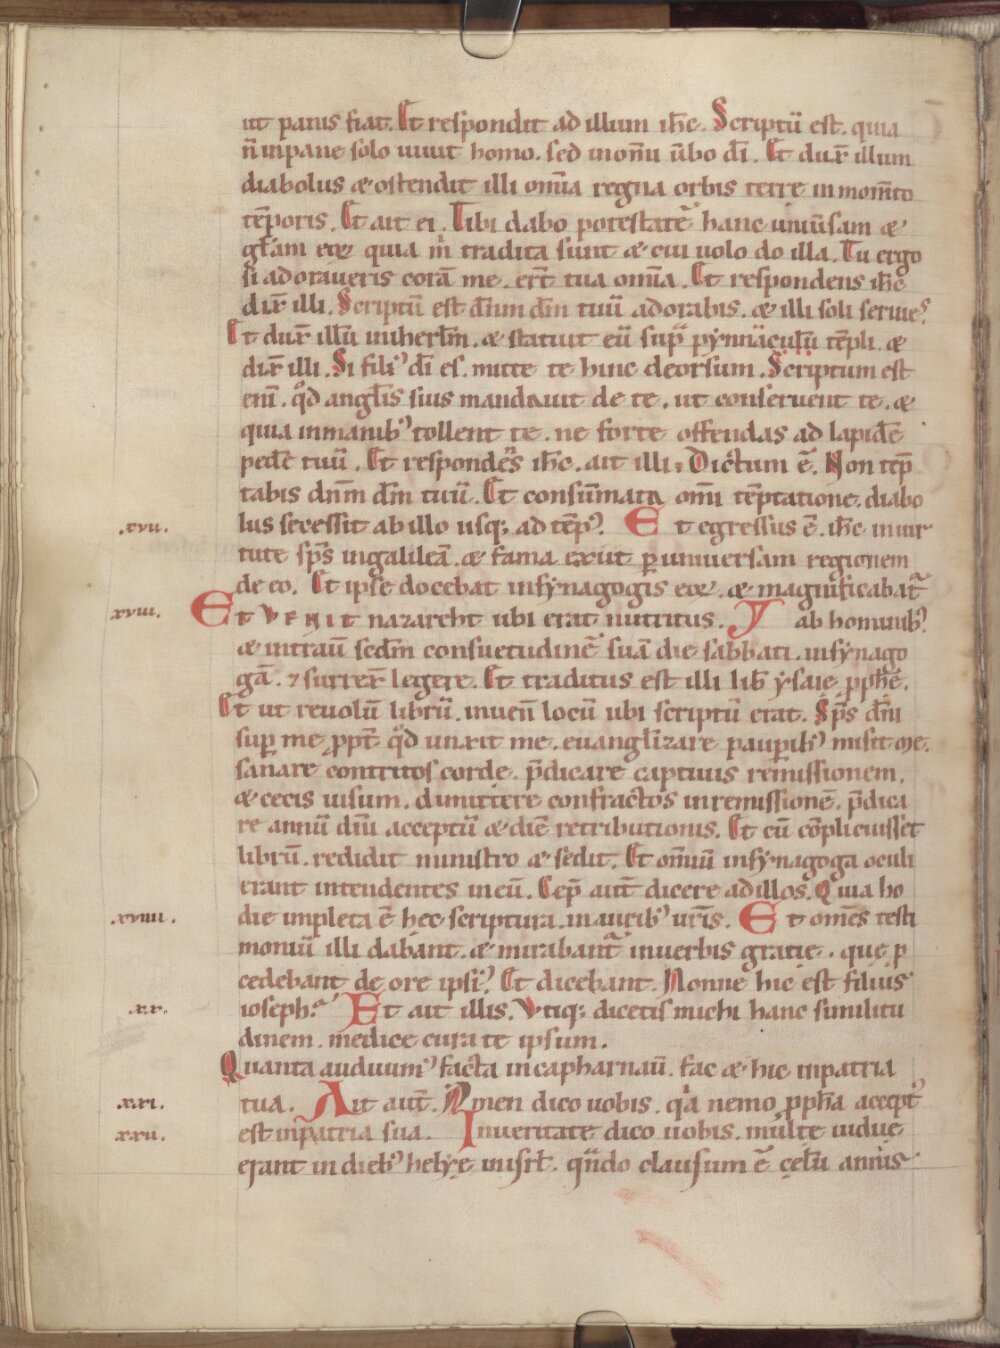 ut panis fiat. Et respondit ad illum ih̅c. Scriptū est. quia
n̅ inpane solo uiuit homo. sed inom̅i ūbo d̅i. Et dux̅ illum
diabolus & ostendit illi om̅ia regna orbis terre in mom̅to
tēporis. Et ait ei. Tibi dabo potestatē hanc uniūsam &
gl̅am eoꝝ quia m̅ tradita sunt & cui uolo do illa. Tu ergo
si adoraueris corā me. er̅t tua om̅ia. Et respondens ih̅c
dix̅ illi. Scriptū est dn̅m dm̅ tuū adorabis. & illi soli seruies.
Et dux̅ illū inherl̅m. & statuit eū sup̅ pynnaculū tēpli. &
dix̅ illi. Si filiꝰ d̅i es. mitte te hinc deorsum. Scriptum est
eni̅. qd̅ angl̅is suis mandauit de te. ut conseruent te. &
quia inmanibꝰ tollent te. ne forte offendas ad lapidē
pedē tuū. Et respondēs ih̅c. ait illi. Dictum ē. Non tēp
tabis dn̅m dm̅ tuū. Et consūmata om̅i tēptatione. diabo
lus secessit ab illo usq; ad tēpꝰ. Et egressus ē. ih̅c inuir
xvii.
tute sp̅s ingalileā. & fama exiit ꝑ uniuersam regionem
de eo. Et ipse docebat insynagogis eoꝝ. & magnificabat᷑
xviii.
Et venit nazareht ubi erat nutritus. ab hominibꝰ.
& intrauı̅ scdm̅ consuetudinē suā die sabbati. insynago
gā. ⁊ surrex̅ legere. Et traditus est illi lib̅ ysaie ꝓph̅e.
Et ut reuolū librū. inuen̅ locū ubi scriptū erat. Sp̅s dn̅i
sup̅ me ꝓpt̅ qd̅ unxit me. euangl̅izare pauꝑibꝰ misit me.
sanare contritos corde. p̅dicare captiuis remissionem.
& cecis uisum. dimittere confractos inremissionē. p̅dica
re annū dn̅i acceptū & diē retributionis. Et cū cōplicuisset
librū. redidit ministro & sedit. Et om̅iū insynagoga oculi
erant intendentes ineū. Cep̅ aut̅ dicere adillos. Quia ho
xviiii.
die impleta ē hec scriptura. in auribꝰ ur̅is. Et om̅es testi
moniū illi dabant. & mirabant᷑ inuerbis gratie. que ꝓ
cedebant de ore ipsiꝰ. Et dicebant. Nonne hic est filius
xx.
ioseph? Et ait illis. Vtiq; dicetis michi hanc similitu
dinem. medice cura te ipsum.
Quanta audiuimꝰ facta incapharnaū. fac & hic inpatria
xxi.
tua. Ait aut̅. Amen dico uobis. qa̅ nemo ꝓph̅a acceptꝰ
xxii.
est inpatria sua. Inueritate dico uobis. multe uidue
erant in diebꝰ helye inisrl̅. qn̅do clausum ē celū annis